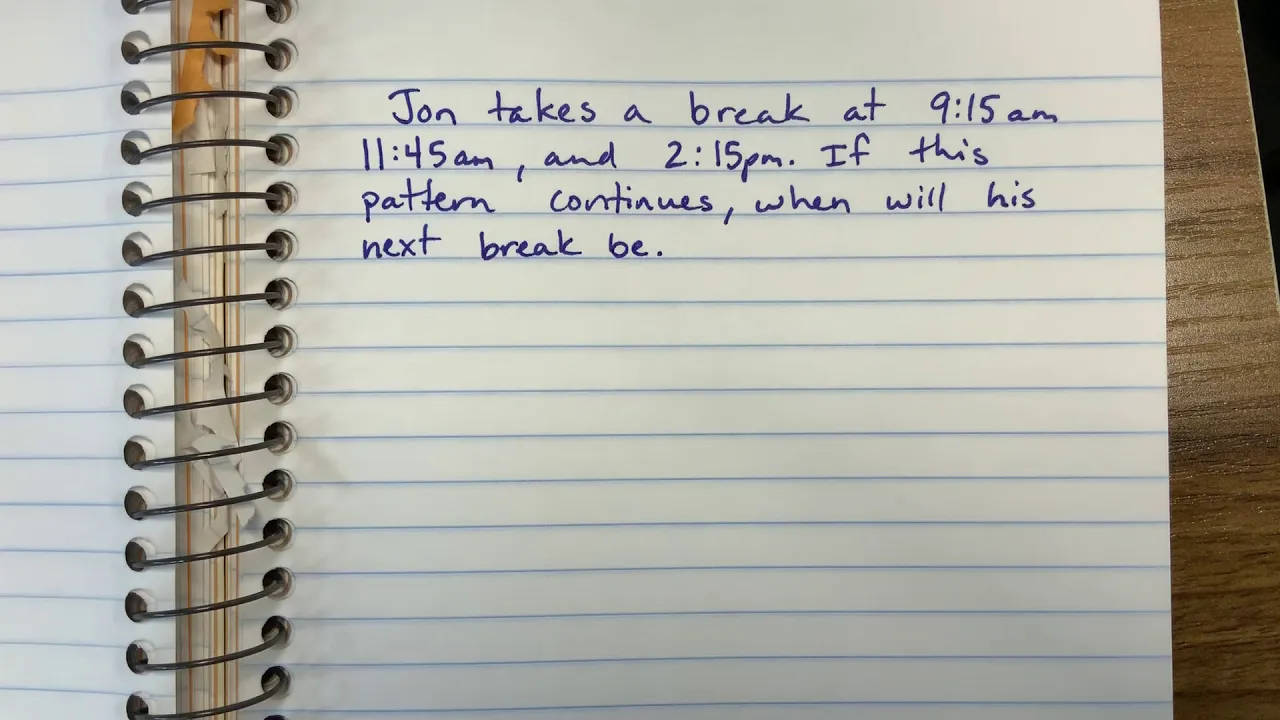 Jon takes a break at 9:15am
11:45am, and 2:15pm. If this
pattern continues, when will his
next break be.